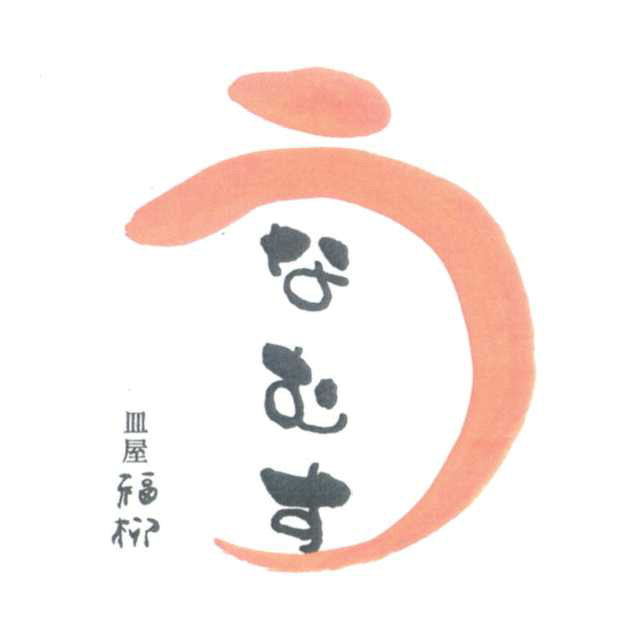 うなむす
皿屋
福柳